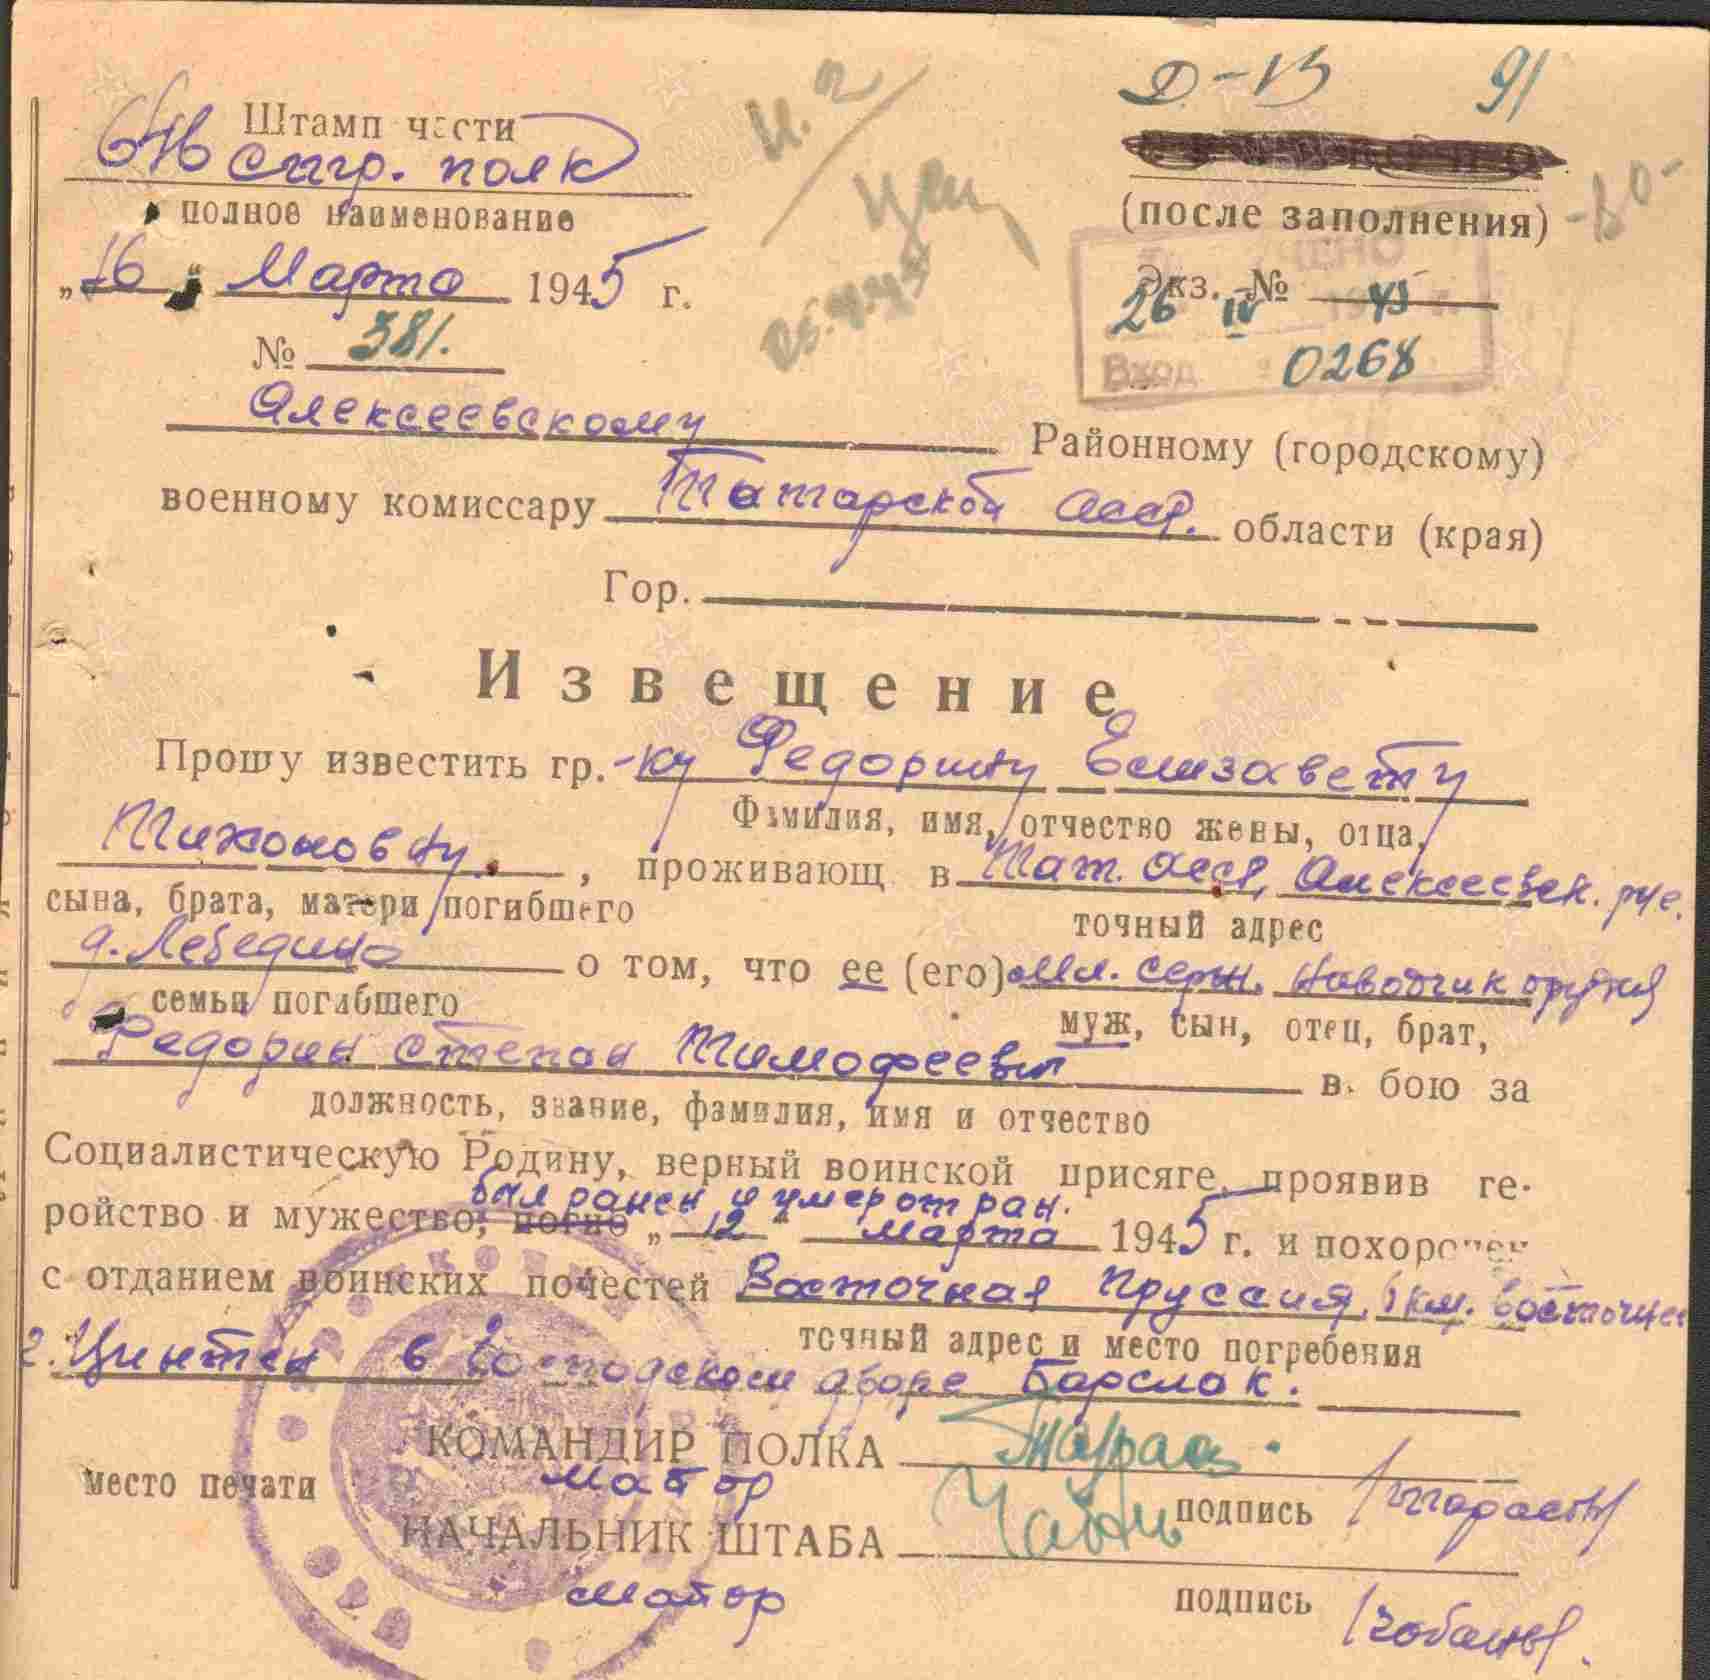 Д-13 91
Штамп части
стр. полк
полное наименование
(после заполнения)
„16" Марта 1945 г.
Экз. №
26 IV 45
№ 381.
Вход 0268
Алексеевскому Районному (городскому)
военному комиссару Татарской АССР. области (края)
Гор.
Извещение
Прошу известить гр.-ку Федорину Елизавету
Фамилия, имя, отчество жены, отца,
Тихоновну. , проживающ в Тат. АССР, Алексеевск. р-не.
сына, брата, матери погибшего
точный адрес
д. Лебедино о том, что ее (его) мл. серж. наводчик орудия
семьи погибшего
муж, сын, отец, брат,
Федорин Степан Тимофеевич в бою за
должность, звание, фамилия, имя и отчество
Социалистическую Родину, верный воинской присяге, проявив ге-
был ранен и умер от ран.
ройство и мужество, погиб „12" марта 1945 г. и похоронен
с отданием воинских почестей Восточная Пруссия, 1 км. восточнее
точный адрес и место погребения
г. Цинтен в Господском дворе Барслак.
КОМАНДИР ПОЛКА
майор
место печати
подпись
НАЧАЛЬНИК ШТАБА
майор
подпись